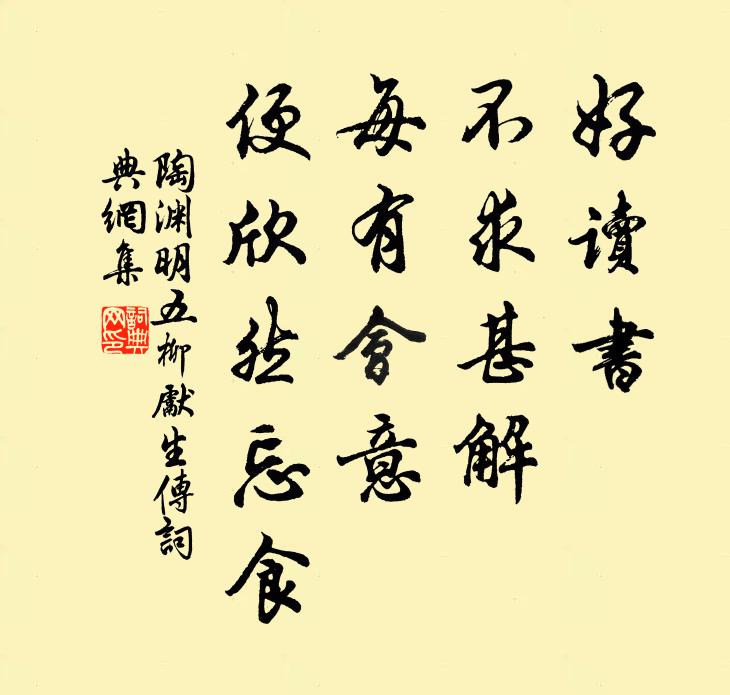 好讀書
不求甚解
每有會意
便欣然忘食
陶渊明五柳獻生傳詞
典網集
詞典
网印